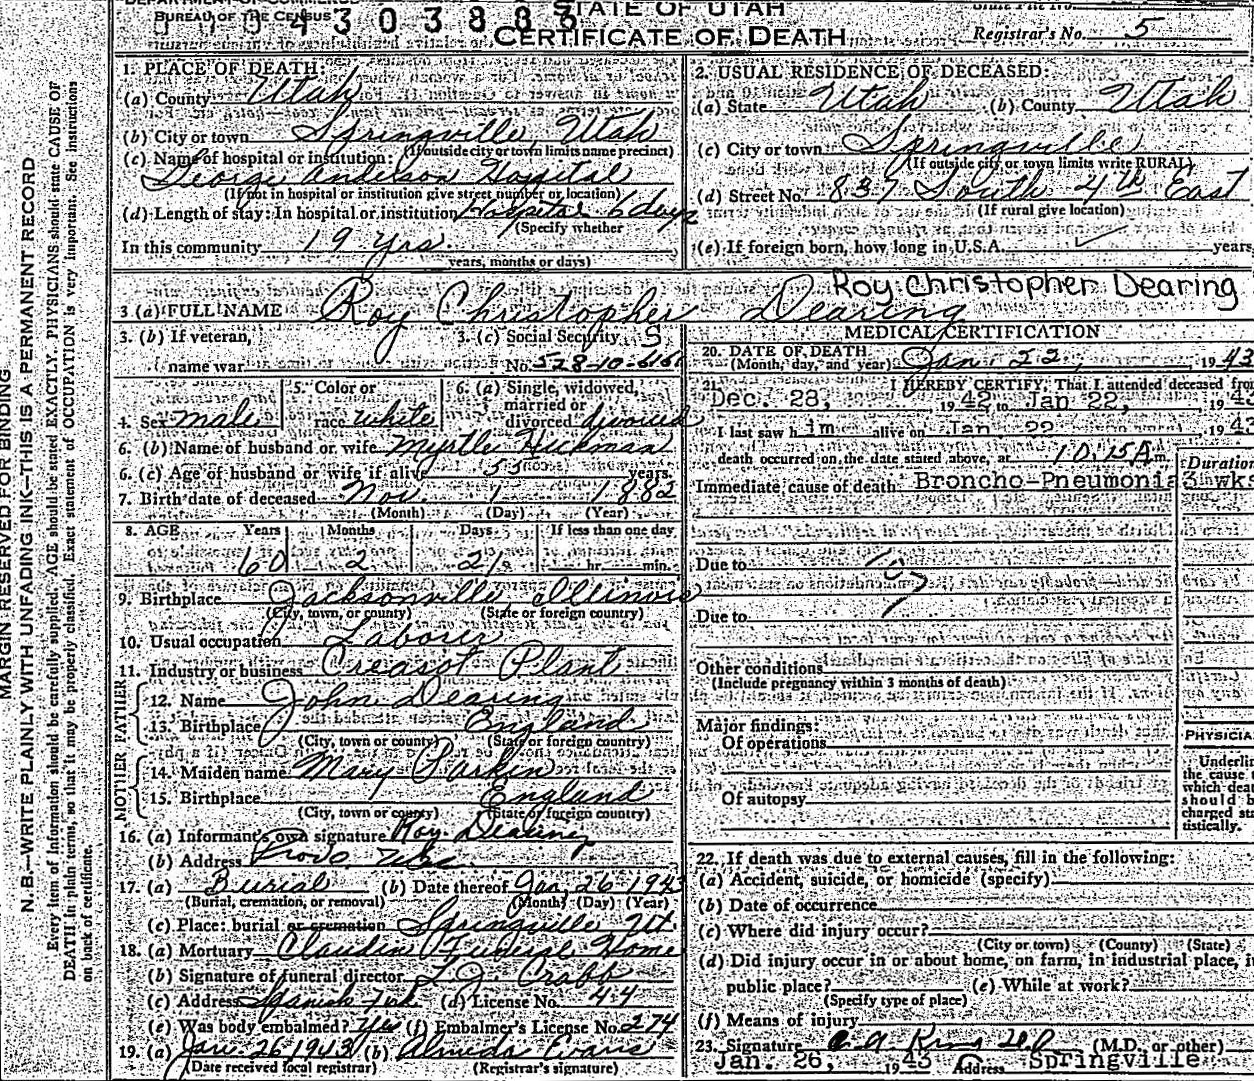 STATE OF UTAH
BUREAU OF THE CENSUS
CERTIFICATE OF DEATH
Registrar's No. 5
MARGIN RESERVED FOR BINDING
N.B.—WRITE PLAINLY WITH UNFADING INK—THIS IS A PERMANENT RECORD
Every item of information should be carefully supplied. AGE should be stated EXACTLY. PHYSICIANS should state CAUSE OF
DEATH in plain terms, so that it may be properly classified. Exact statement of OCCUPATION is very important. See instructions
on back of certificate.
1. PLACE OF DEATH:
(a) County Utah
(b) City or town Springville Utah
(If outside city or town limits name precinct)
(c) Name of hospital or institution:
George Anderson Hospital
(If not in hospital or institution give street number or location)
(d) Length of stay: In hospital or institution Hospital 6 days
(Specify whether
In this community 19 yrs.
years, months or days)
2. USUAL RESIDENCE OF DECEASED:
(a) State Utah (b) County Utah
(c) City or town Springville
(If outside city or town limits write RURAL)
(d) Street No. 837 South 4th East
(If rural give location)
(e) If foreign born, how long in U.S.A. years
Roy Christopher Dearing
3 (a) FULL NAME Roy Christopher Dearing
3. (b) If veteran,
name war
3. (c) Social Security
No. 528-10-
4. Sex male
5. Color or
race white
6. (a) Single, widowed,
married or
divorced divorced
6. (b) Name of husband or wife Myrtle Hickman
6. (c) Age of husband or wife if alive 55 years.
7. Birth date of deceased Nov. 1 1882
(Month) (Day) (Year)
8. AGE Years Months Days If less than one day
60 2 21 hr. min.
9. Birthplace Jacksonville Illinois
(City, town, or county) (State or foreign country)
10. Usual occupation Laborer
11. Industry or business Creasot Plant
FATHER
12. Name John Dearing
13. Birthplace England
(City, town or county) (State or foreign country)
MOTHER
14. Maiden name Mary Parkin
15. Birthplace England
(City, town or county) (State of foreign country)
16. (a) Informant's own signature Roy Dearing
(b) Address Provo Utah
17. (a) Burial (b) Date thereof Jan. 26 1943
(Burial, cremation, or removal) (Month) (Day) (Year)
(c) Place: burial or cremation Springville Ut.
18. (a) Mortuary Claudin Funeral Home
(b) Signature of funeral director L J Crabb
(c) Address Spanish Fork (d) License No. 44
(e) Was body embalmed? Yes (f) Embalmer's License No. 274
19. (a) Jan. 26 1943 (b) Almeda Evans
(Date received local registrar) (Registrar's signature)
MEDICAL CERTIFICATION
20. DATE OF DEATH Jan. 22, 1943
(Month, day, and year)
21. I HEREBY CERTIFY, That I attended deceased from
Dec. 28, 1942 to Jan 22, 1943
I last saw him alive on Jan. 22 1943
death occurred on the date stated above, at 10:15 A m.
Duration
Immediate cause of death Broncho-Pneumonia 3 wks
Due to 107
Due to
Other conditions
(Include pregnancy within 3 months of death)
Major findings:
Of operations
Of autopsy
PHYSICIA
Underlin
the cause
which deat
should b
charged sta
tistically.
22. If death was due to external causes, fill in the following:
(a) Accident, suicide, or homicide (specify)
(b) Date of occurrence
(c) Where did injury occur?
(City or town) (County) (State)
(d) Did injury occur in or about home, on farm, in industrial place, in
public place? (e) While at work?
(Specify type of place)
(f) Means of injury
23. Signature (M.D. or other)
Jan. 26, 1943 Address Springville